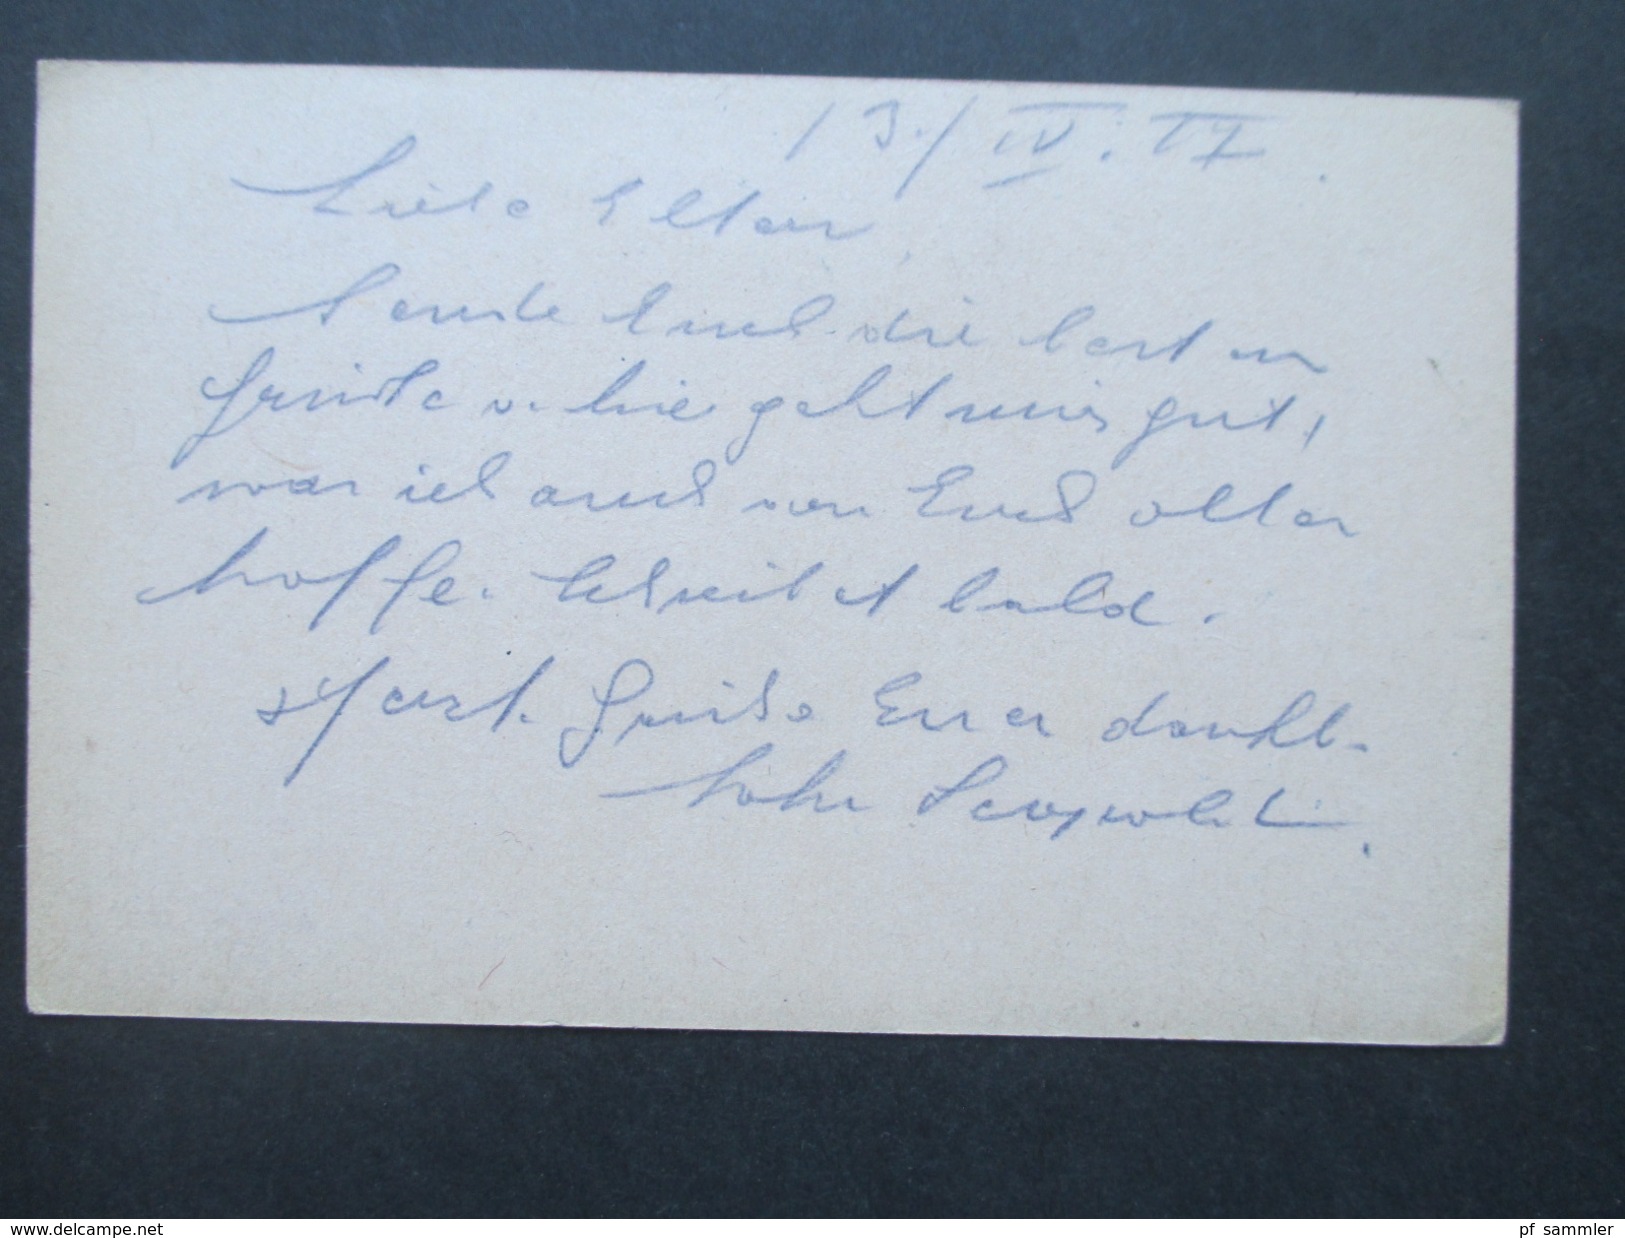 13./IV. 17.
Liebe Eltern,
Sende Euch die besten
Grüsse u. hier geht mir gut,
was ich auch von Euch allen
hoffe. Schreibet bald.
Herzl. Grüsse Euer dankb.
Sohn Leopold
www.delcampe.net
pf_sammler